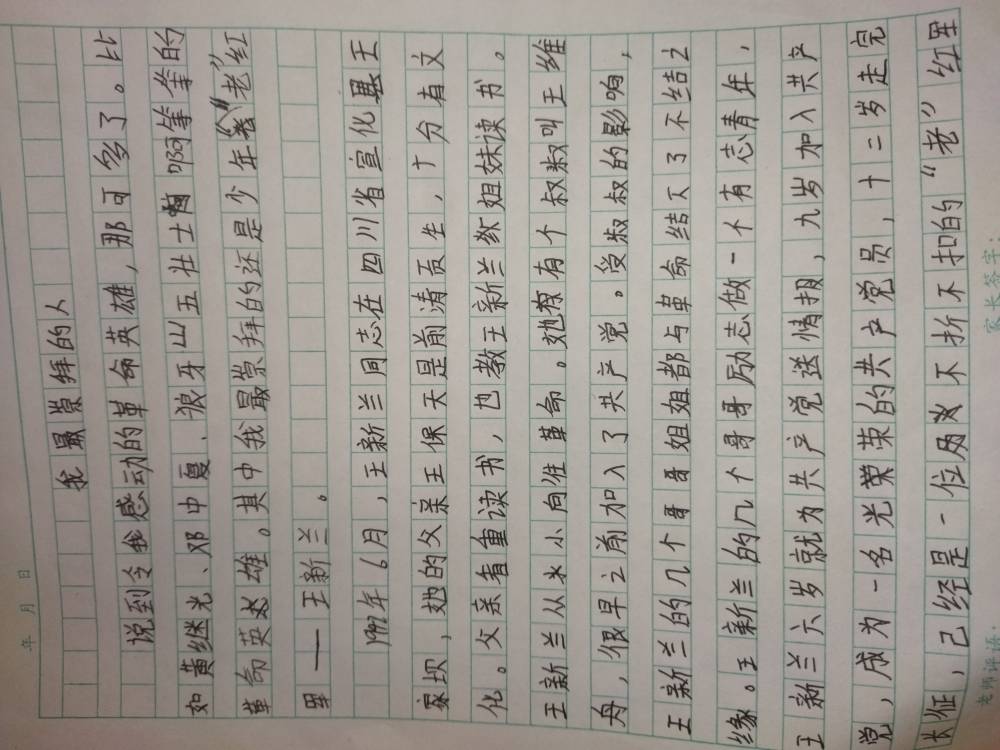 年 月 日
我最崇拜的人
说到令我感动的革命英雄,那可多了。比
如黄继光、邓中夏、狼牙山五壮士啊等等的
革命英雄。其中我最崇拜的还是少年《“老”红
军——王新兰。
年6月,王新兰同志在四川省宣化县王
家坝,她的父亲王保天是前清贡生,十分有文
化。父亲看重读书,也教王新兰教姐妹读书。
王新兰从小向往革命。她有个叔叔叫王维
舟,很早之前加入了共产党。受叔叔的影响,
王新兰的几个哥哥姐姐都与革命结下了不结之
缘。王新兰的几个哥哥励志做一个有志青年,
王新兰六岁就为共产党送情报,九岁加入共产
党,成为一名光荣荣的共产党员,十二岁走完
长征,已经是一位不折不扣的“老”红军
老师评语: 家长签字: